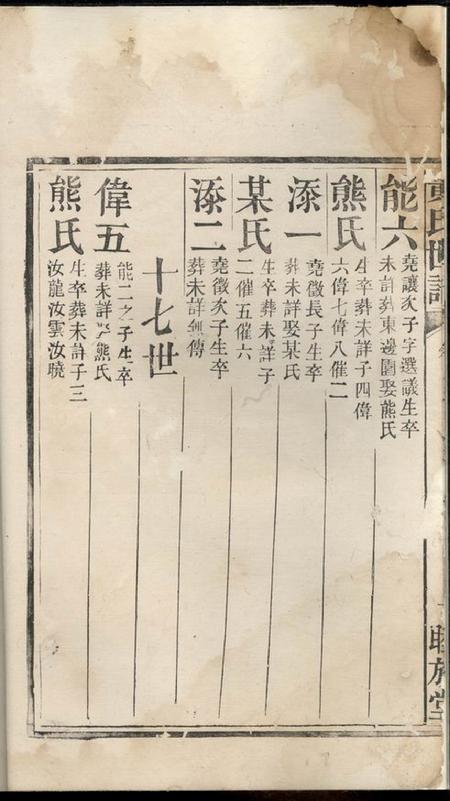 氏世譜
睦族堂
能六
堯讓次子字選議生卒
未詳葬東邊園娶熊氏
熊氏
生卒葬未詳子四偉
六偉七偉八催二
添一
堯徵長子生卒
葬未詳娶某氏
某氏
生卒葬未詳子
二催五催六
添二
堯徵次子生卒
葬未詳無傳
十七世
偉五
能二之子生卒
葬未詳娶熊氏
熊氏
生卒葬未詳子三
汝龍汝雲汝曉